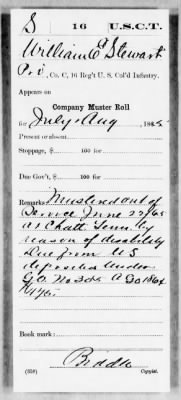 S 16 U.S.C.T.
William E Stewart
Pvt, Co. C, 16 Reg't U. S. Col'd Infantry.
Appears on
Company Muster Roll
for July & Aug, 1865
Present or absent
Stoppage, $ 100 for
Due Gov't, $ 100 for
Remarks: Mustered out of
Service June 22/65
at Chatt Tenn by
reason of disability
Due from U S
deposites under
G.O. No 305 A G O 1864
Book mark:
Biddle
(358) Copyist.